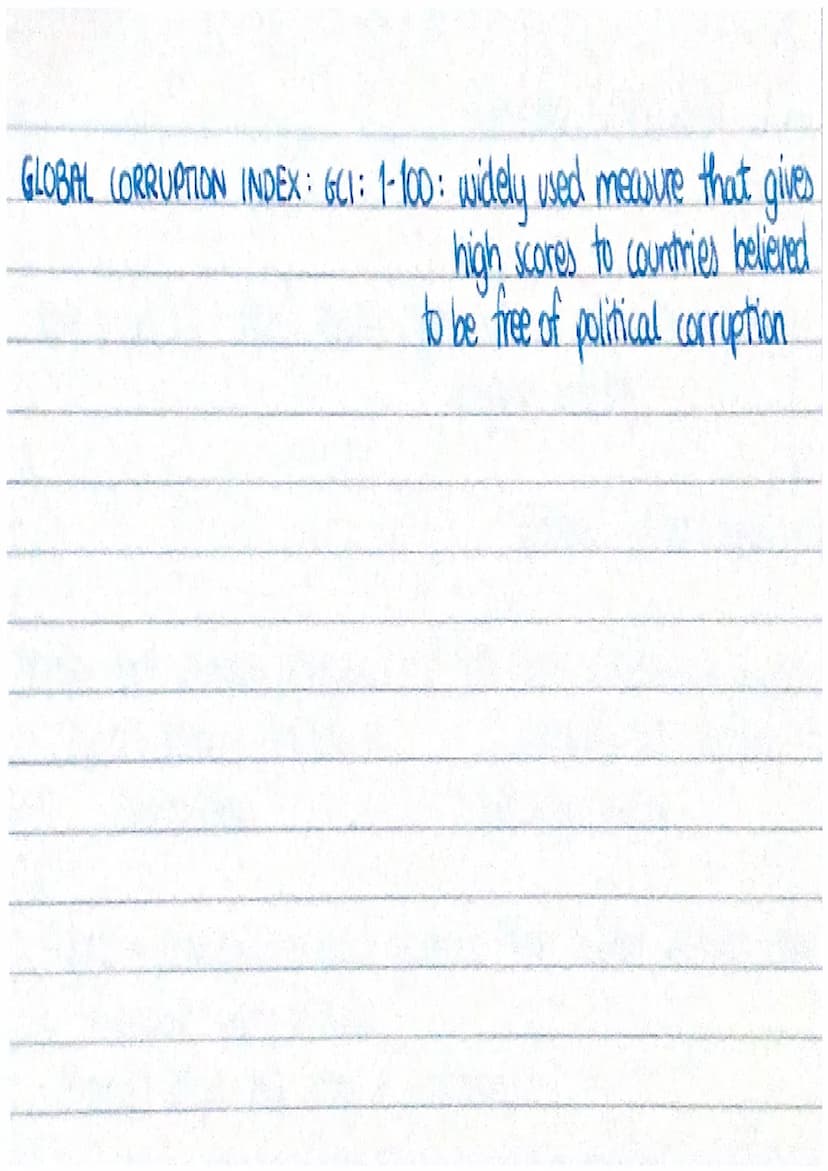 GLOBAL CORRUPTION INDEX: GCI: 1-100: widely used measure that gives
high scores to countries believed
to be free of political corruption